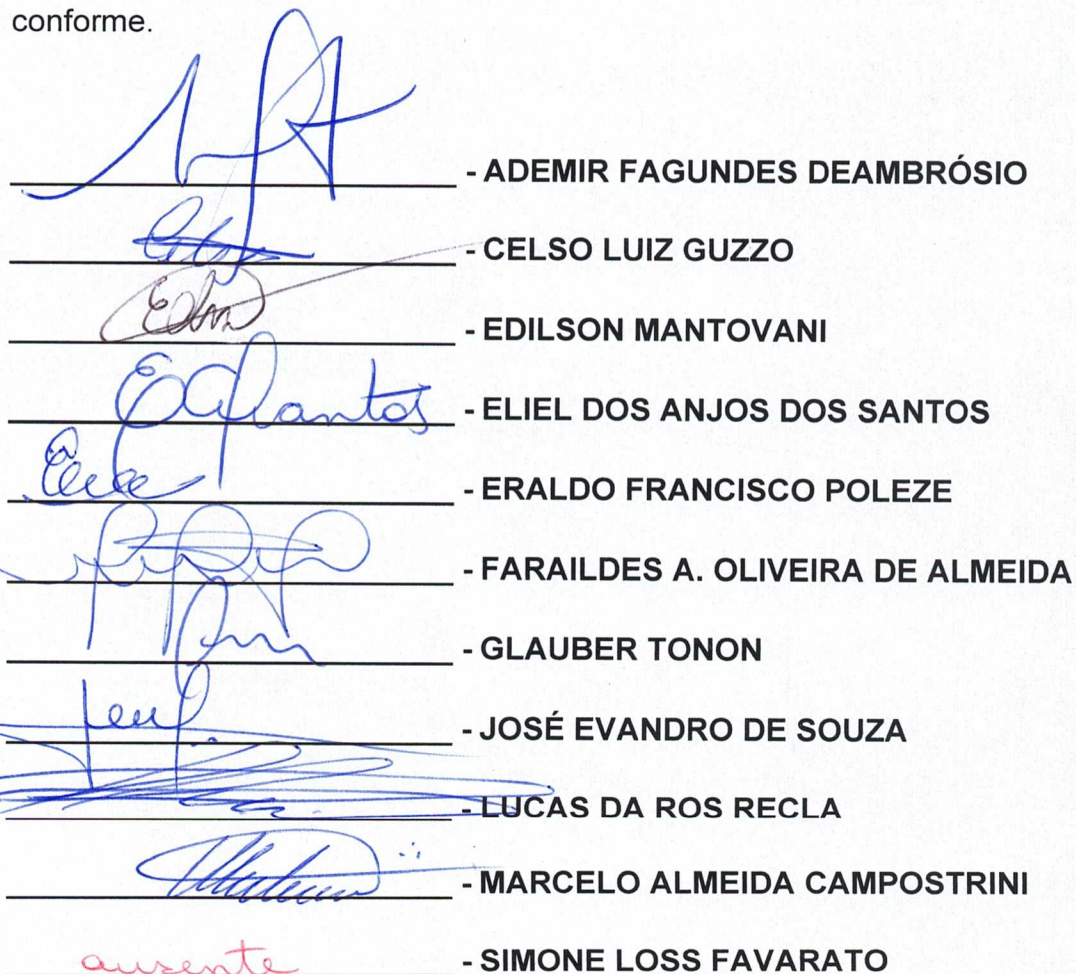 conforme.
- ADEMIR FAGUNDES DEAMBRÓSIO
- CELSO LUIZ GUZZO
- EDILSON MANTOVANI
- ELIEL DOS ANJOS DOS SANTOS
- ERALDO FRANCISCO POLEZE
- FARAILDES A. OLIVEIRA DE ALMEIDA
- GLAUBER TONON
- JOSÉ EVANDRO DE SOUZA
- LUCAS DA ROS RECLA
- MARCELO ALMEIDA CAMPOSTRINI
ausente - SIMONE LOSS FAVARATO